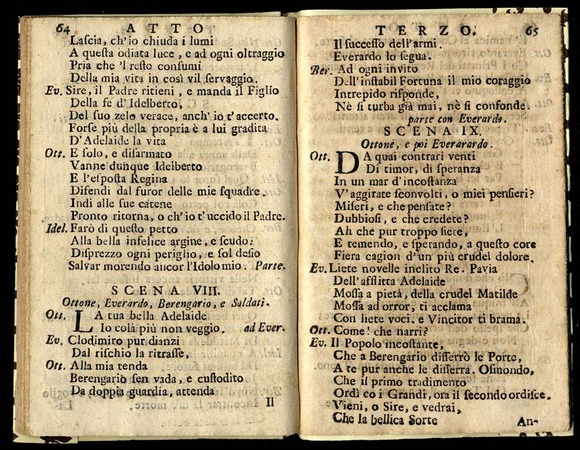 64 ATTO
Lascia, ch'io chiuda i lumi
A questa odiata luce, e ad ogni oltraggio
Pria che 'l resto consumi
Della mia vita in così vil servaggio.
Ev. Sire, il Padre ritieni, e manda il Figlio
Della fe d'Idelberto,
Del suo zelo verace, anch'io t'accerto.
Forse più della propria è a lui gradita
D'Adelaide la vita
Ott. E solo, e disarmato
Vanne dunque Idelberto
E l'esposta Regina
Difendi dal furor delle mie squadre.
Indi alle sue catene
Pronto ritorna, o ch'io t'uccido il Padre.
Idel. Farò di questo petto
Alla bella infelice argine, e scudo:
Disprezzo ogni periglio, e sol desio
Salvar morendo ancor l'Idolo mio. Parte.
SCENA VIII.
Ottone, Everardo, Berengario, e Soldati.
Ott. LA tua bella Adelaide
Io colà più non veggio. ad Ever.
Ev. Clodimiro pur dianzi
Dal rischio la ritrasse,
Ott. Alla mia tenda
Berengario sen vada, e custodito
Da doppia guardia, attenda
Il
TERZO. 65
Il successo dell'armi.
Everardo lo segua.
Ber. Ad ogni invito
Dell'instabil Fortuna il mio coraggio
Intrepido risponde,
Nè si turba già mai, nè si confonde.
parte con Everardo.
SCENA IX.
Ottone, e poi Everarardo.
Ott. DA quai contrari venti
Di timor, di speranza
In un mar d'incostanza
V'aggirate sconvolti, o miei pensieri?
Miseri, e che pensate?
Dubbiosi, e che credete?
Ah che pur troppo siete,
E temendo, e sperando, a questo core
Fiera cagion d'un più crudel dolore.
Ev. Liete novelle inclito Re. Pavia
Dell'afflitta Adelaide
Mossa a pietà, della crudel Matilde
Mossa ad orror, ti acclama
Con liete voci, e Vincitor ti brama.
Ott. Come! che narri?
Ev. Il Popolo incostante,
Che a Berengario disserrò le Porte,
A te pur anche le disserra. Osmondo,
Che il primo tradimento
Ordì co i Grandi, ora il secondo ordisce.
Vieni, o Sire, e vedrai,
Che la bellica Sorte
An-